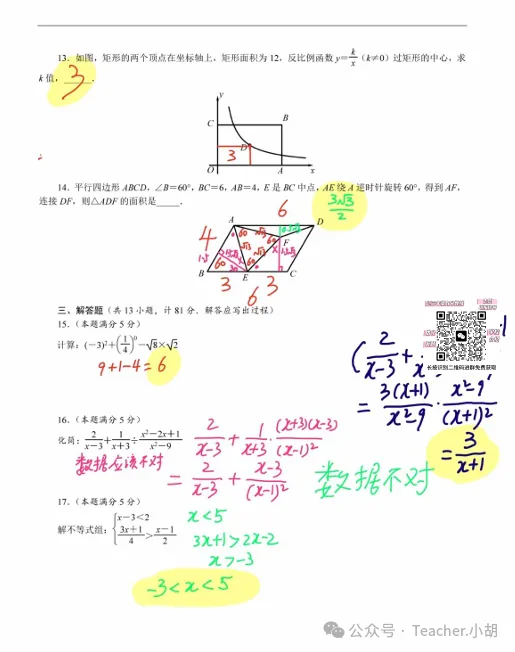 13. 如图，矩形的两个顶点在坐标轴上，矩形面积为 12，反比例函数 y=k/x (k≠0) 过矩形的中心，求
k 值，______.
3
y
C B
3 D
O A x
14. 平行四边形 ABCD，∠B=60°，BC=6，AB=4，E 是 BC 中点，AE 绕 A 逆时针旋转 60°，得到 AF，
连接 DF，则△ADF 的面积是_____.
3√3/2
6
A D
4 60 √13 60 F
1.5 √13 √13
B 30 E 60 C
3 3
6
三、解答题（共 13 小题，计 81 分．解答应写出过程）
15.（本题满分 5 分）
计算：(−3)²+(1/4)⁰−√8×√2
9+1−4=6
长按识别二维码进群免费获取
(2/(x-3)+
=3(x+1)/(x²-9)·(x²-9)/(x+1)²
=3/(x+1)
16.（本题满分 5 分）
化简：2/(x−3)+1/(x+3)÷(x²−2x+1)/(x²−9)
2/(x-3)+1/(x+3)·(x+3)(x-3)/(x-1)²
数据应该不对
=2/(x-3)+(x-3)/(x-1)²
数据不对
17.（本题满分 5 分）
解不等式组：{x−3<2
(3x+1)/4>(x−1)/2
x<5
3x+1>2x-2
x>-3
-3<x<5
公众号 · Teacher.小胡